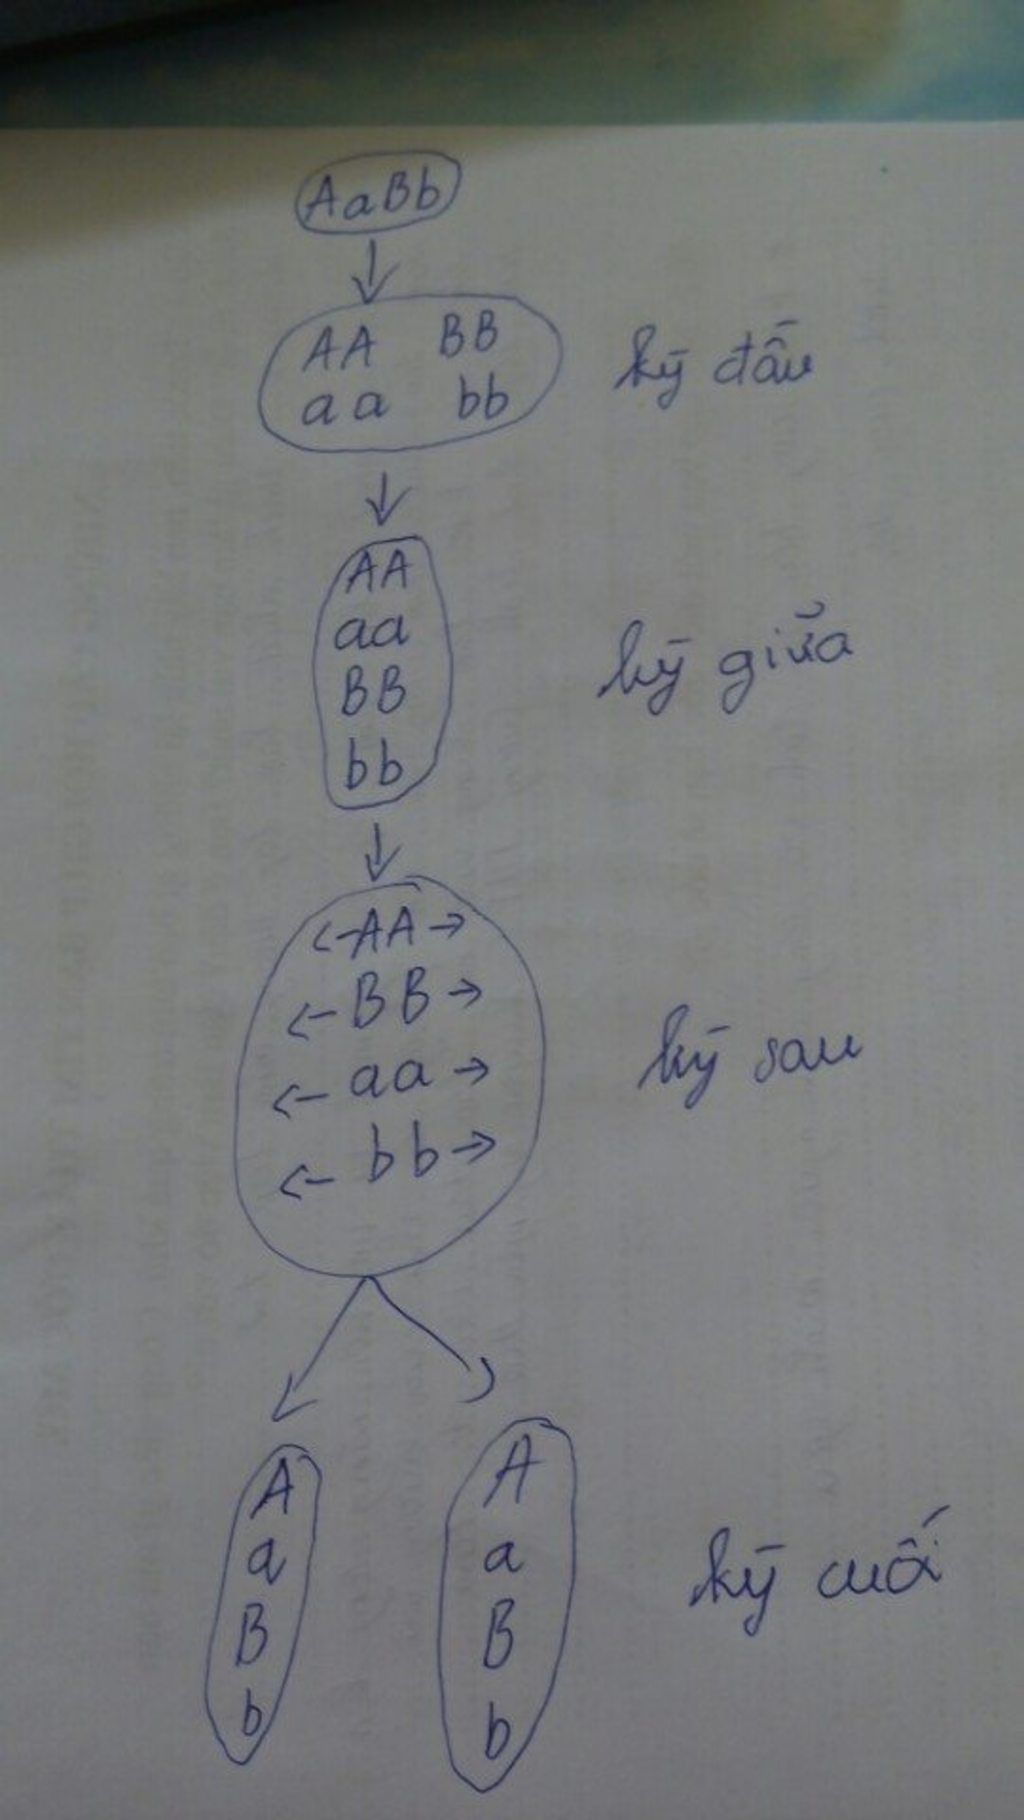 AaBb
AA BB
aa bb
kỳ đầu
AA
aa
BB
bb
kỳ giữa
←AA→
←BB→
←aa→
←bb→
kỳ sau
A A
a a
B B
b b
kỳ cuối